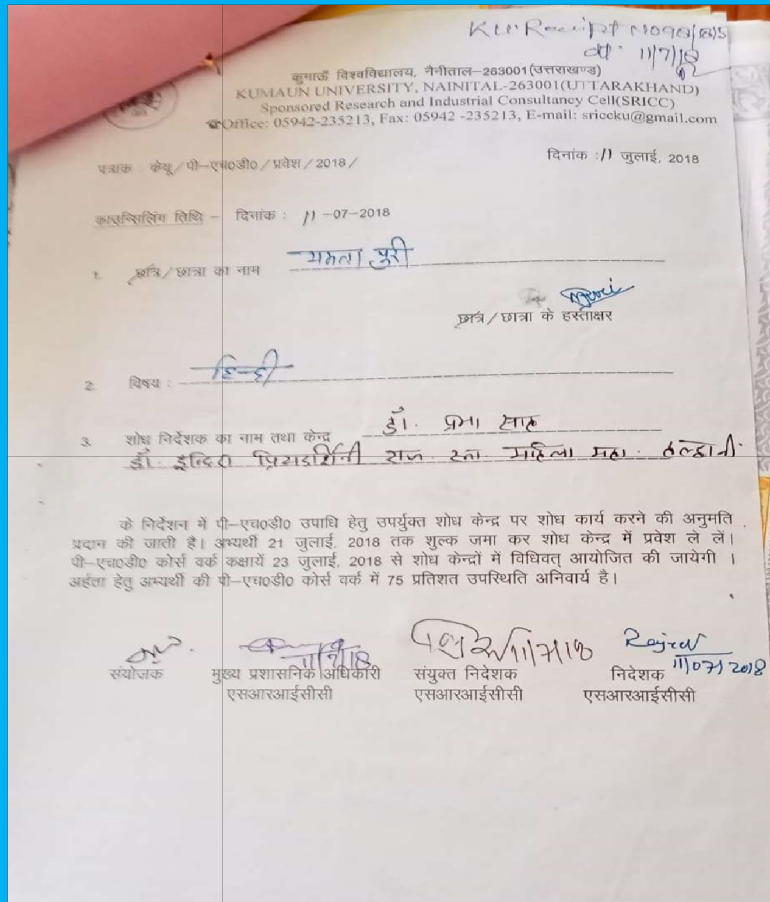 KU Receipt
dt. 11/7/18
कुमाऊँ विश्वविद्यालय, नैनीताल–263001(उत्तराखण्ड)
KUMAUN UNIVERSITY, NAINITAL-263001(UTTARAKHAND)
Sponsored Research and Industrial Consultancy Cell(SRICC)
☎Office: 05942-235213, Fax: 05942 -235213, E-mail: sriccku@gmail.com
पत्रांक : केयू/पी–एच०डी०/प्रवेश/2018/
दिनांक :11 जुलाई, 2018
काउन्सिलिंग तिथि – दिनांक : 11 -07–2018
1. छात्र/छात्रा का नाम ममता पुरी
छात्र/छात्रा के हस्ताक्षर
2. विषय : हिन्दी
3. शोध निर्देशक का नाम तथा केन्द्र डॉ. प्रभा साह
डॉ. इन्दिरा प्रियदर्शिनी राज. स्ना. महिला महा. हल्द्वानी
के निर्देशन में पी–एच०डी० उपाधि हेतु उपर्युक्त शोध केन्द्र पर शोध कार्य करने की अनुमति
प्रदान की जाती है। अभ्यर्थी 21 जुलाई, 2018 तक शुल्क जमा कर शोध केन्द्र में प्रवेश ले लें।
पी–एच०डी० कोर्स वर्क कक्षायें 23 जुलाई, 2018 से शोध केन्द्रों में विधिवत् आयोजित की जायेगी ।
अर्हता हेतु अभ्यर्थी की पी–एच०डी० कोर्स वर्क में 75 प्रतिशत उपस्थिति अनिवार्य है।
11/7/18 11/7/18 11/07/2018
संयोजक मुख्य प्रशासनिक अधिकारी संयुक्त निदेशक निदेशक
एसआरआईसीसी एसआरआईसीसी एसआरआईसीसी